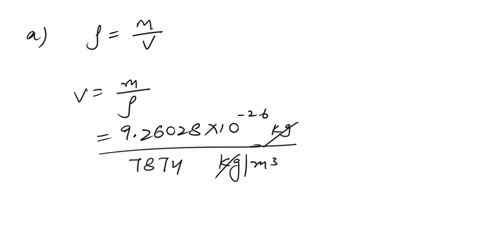 a) ρ = m/V
V = m/ρ
= 9.26028 × 10^-26 kg
7874 kg/m³